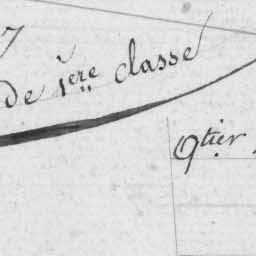 de 1ère classe
Qtier